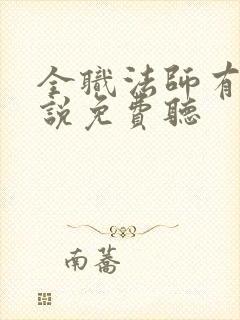 全職法師有
說免費聽
南蕎